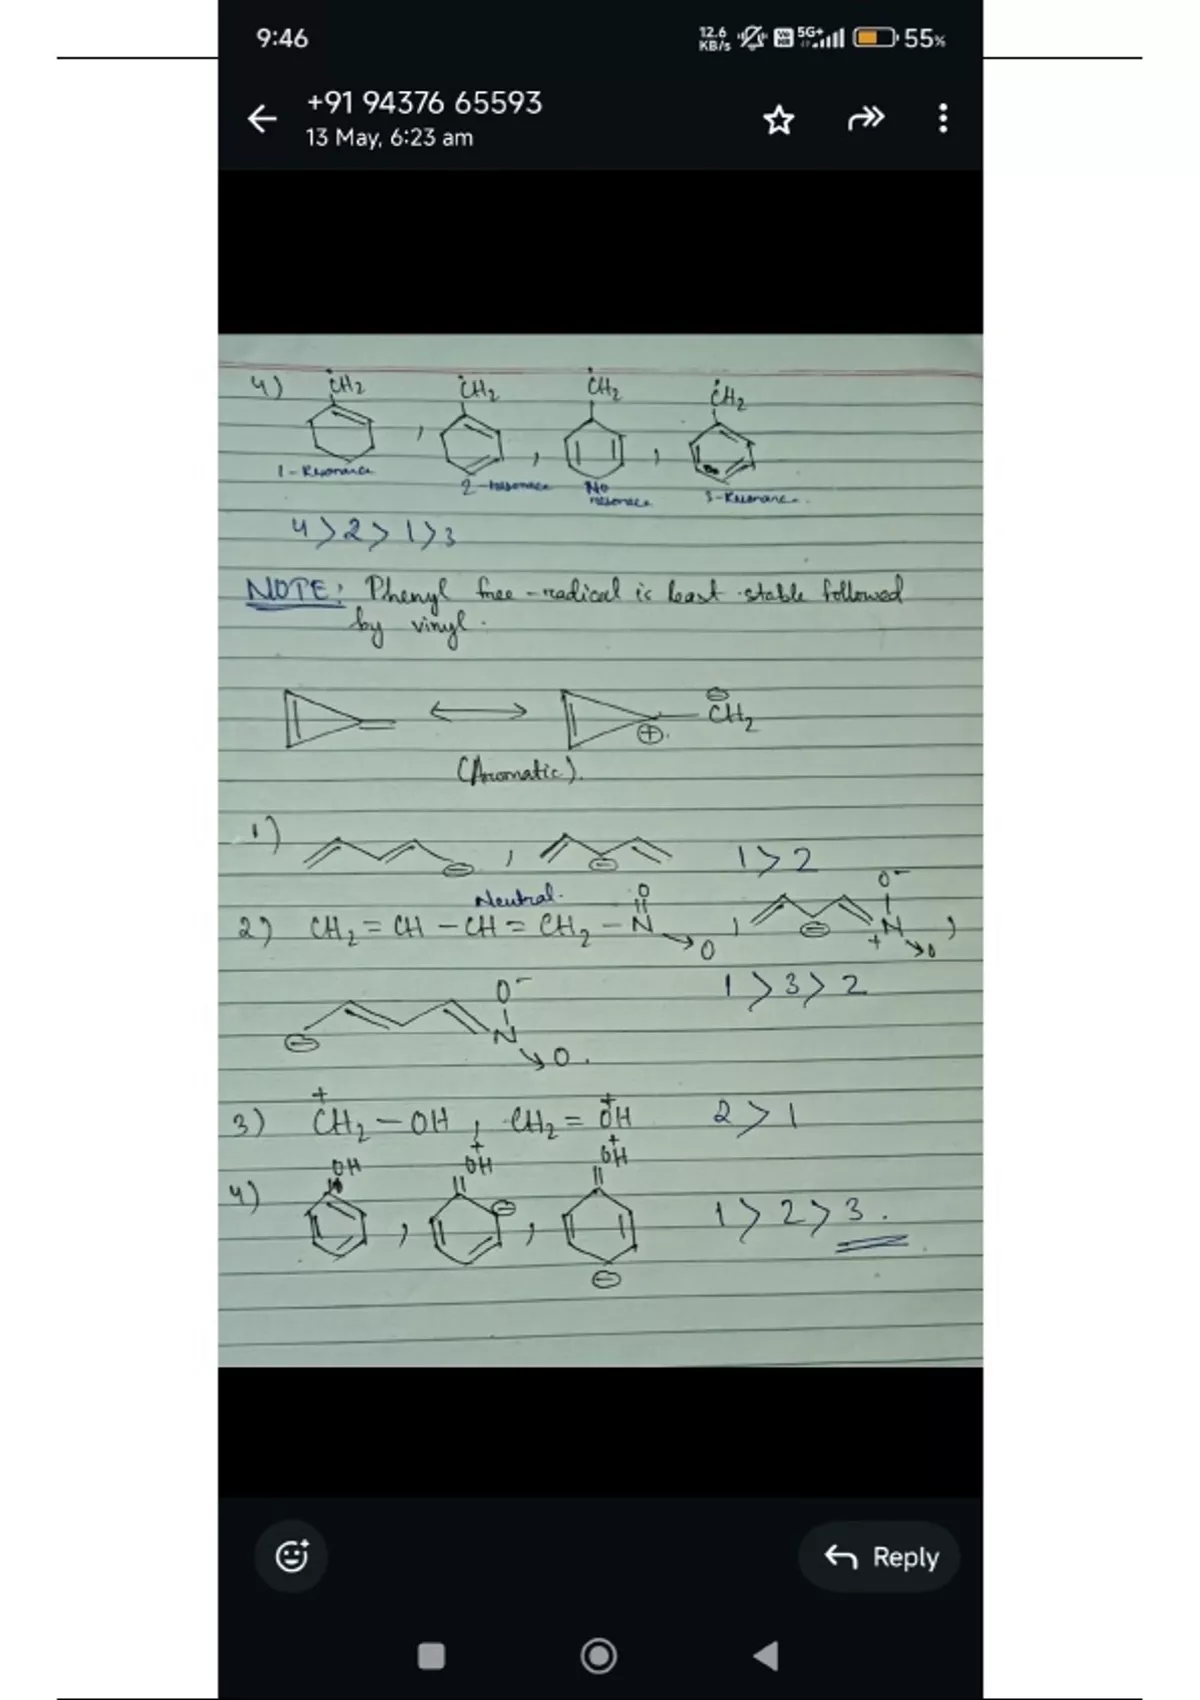 9:46 12.6 KB/s 5G+ 55%
+91 94376 65593
13 May, 6:23 am
4) ĊH₂ ĊH₂ ĊH₂ ĊH₂
, , ,
1-Resonance 2-resonance No resonance 3-Resonance.
4 > 2 > 1 > 3
NOTE: Phenyl free-radical is least stable followed
by vinyl.
⊖
⊕ CH₂
(Aromatic).
1) ⊖ , ⊖ 1 > 2
Neutral. O O⁻
2) CH₂ = CH - CH = CH₂ - N → O , ⊖ N⁺ → O ,
1 > 3 > 2
O⁻
⊖ N → O.
3) C⁺H₂ - OH , CH₂ = O⁺H 2 > 1
OH O⁺H O⁺H
4) , ⊖ , 1 > 2 > 3.
⊖
Reply